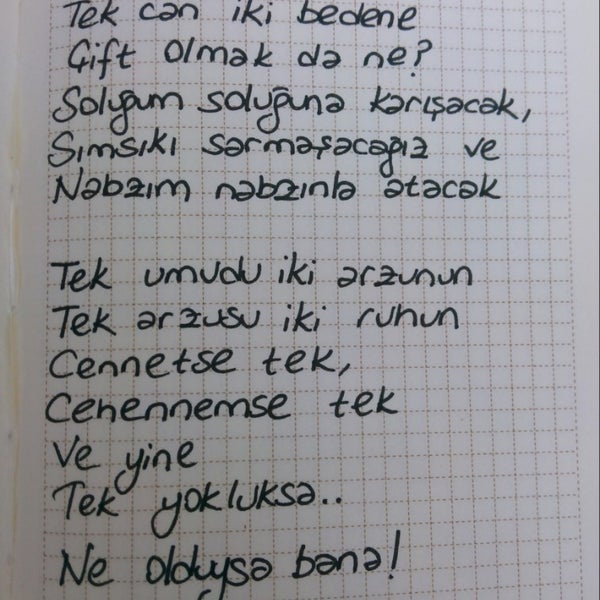 Tek can iki bedene
Çift olmak da ne?
Soluğum soluğuna karışacak,
Sımsıkı sarmaşacağız ve
Nabzım nabzınla atacak
Tek umudu iki arzunun
Tek arzusu iki ruhun
Cennetse tek,
Cehennemse tek
Ve yine
Tek yokluksa..
Ne olduysa bana!